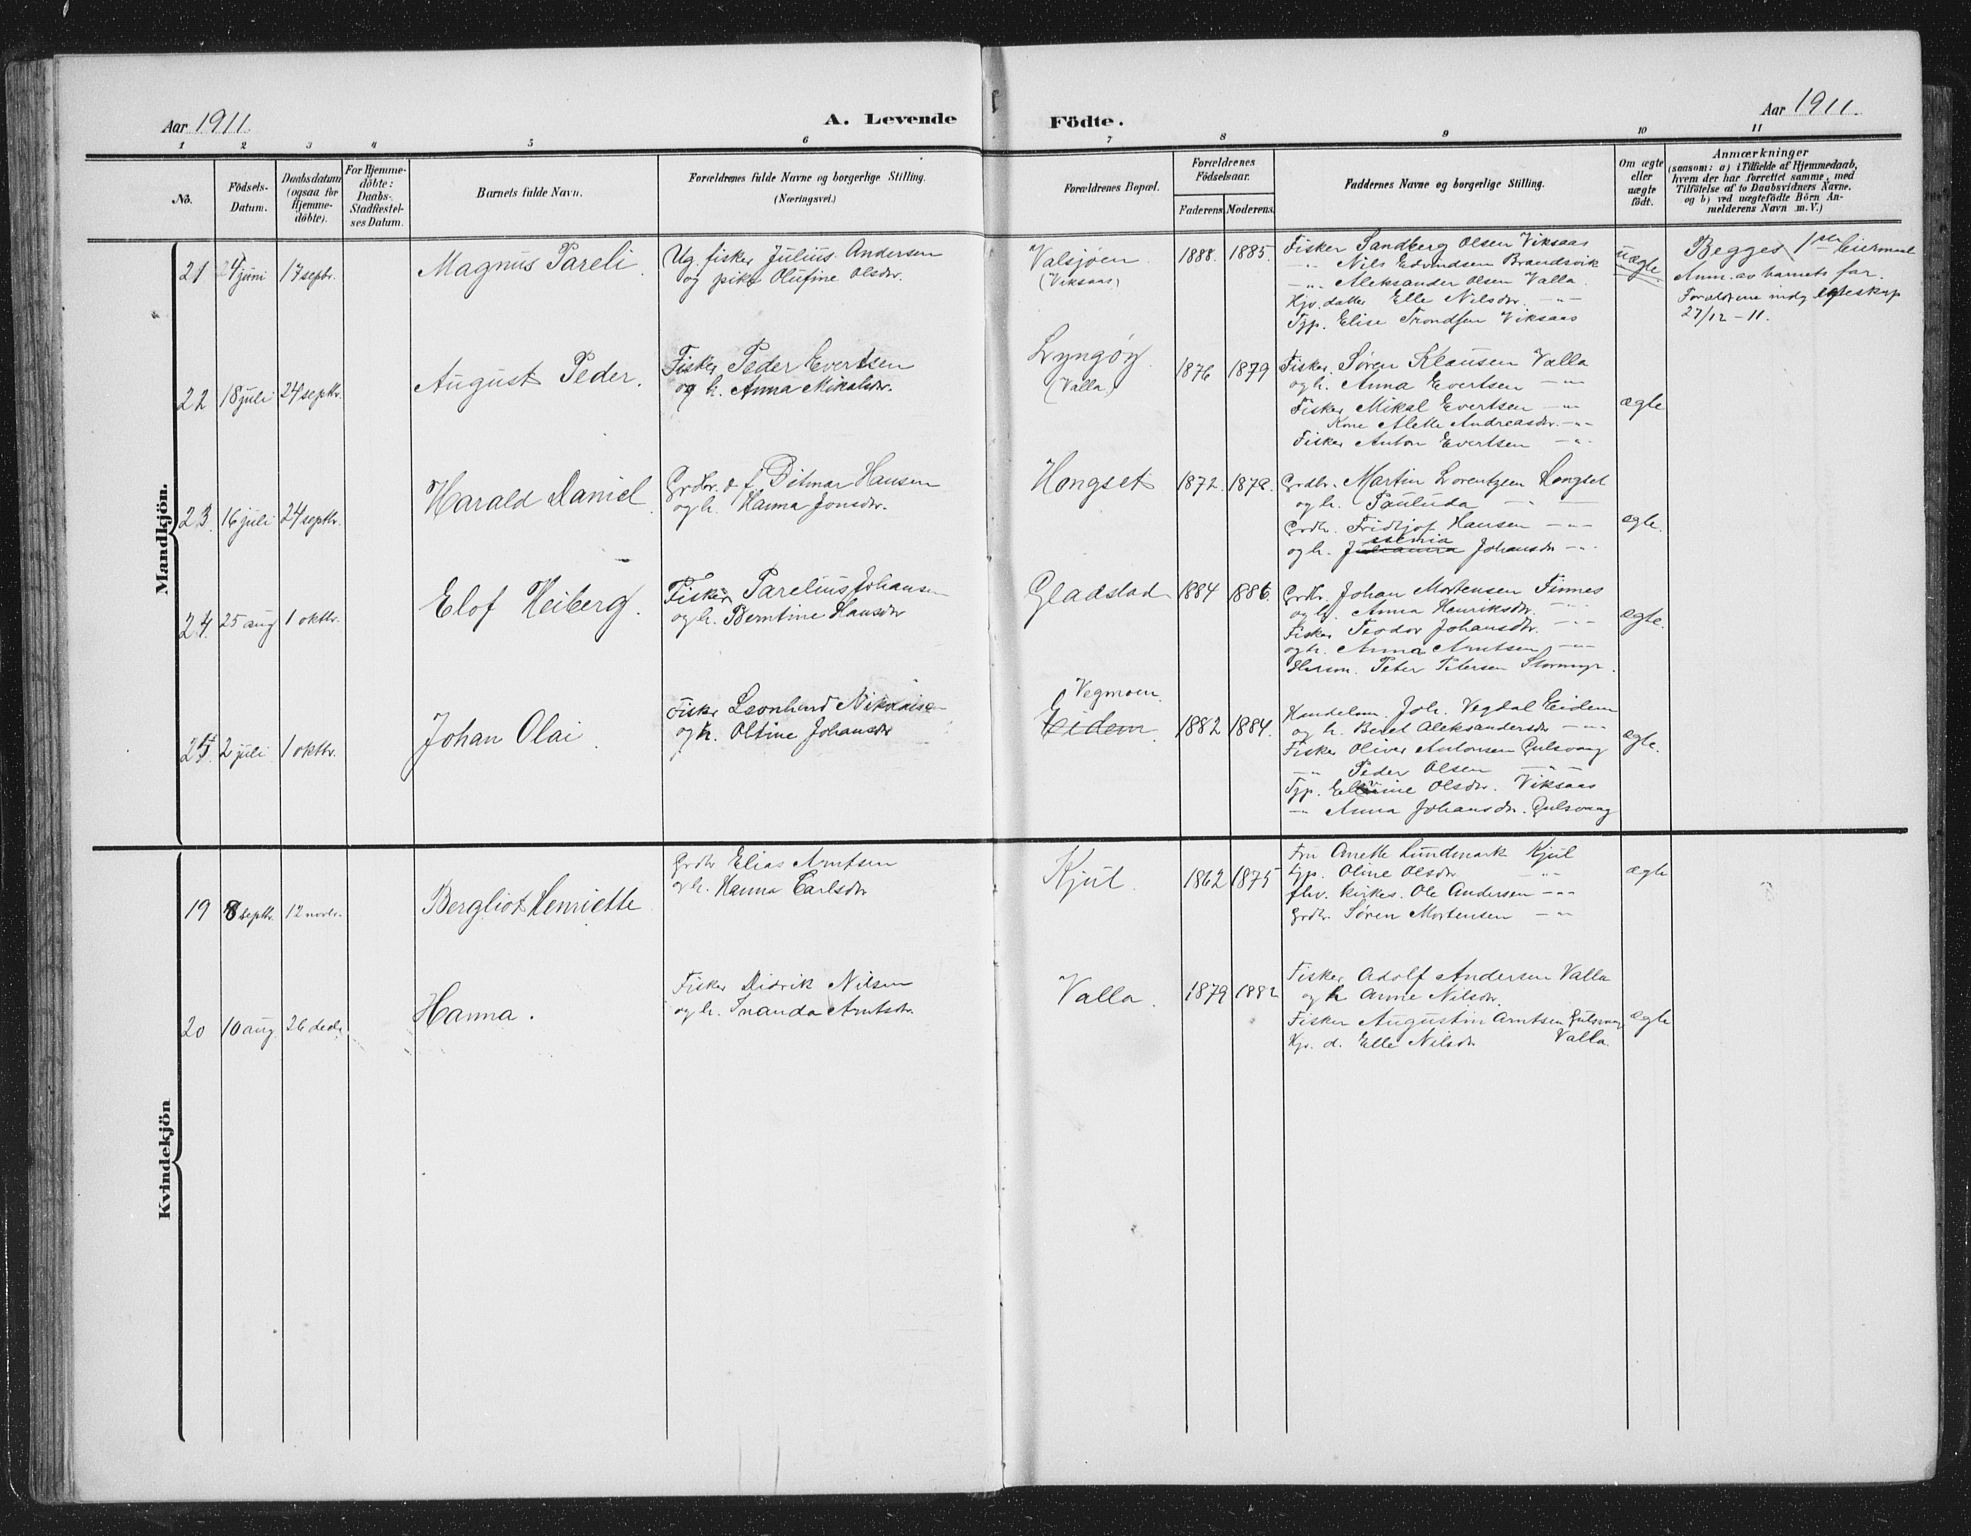 Aar 1911.
A. Levende Födte.
Aar 1911.
1 2 3 4 5 6 7 8 9 10 11
No.
Födsels-Datum.
Daabsdatum (ogsaa for Hjemme-döbte).
For Hjemme-döbte: Daabs-Stadfæstel-ses Datum.
Barnets fulde Navn.
Forældrenes fulde Navne og borgerlige Stilling.
(Næringsvei.)
Forældrenes Bopæl.
Forældrenes Födselsaar.
Faderens. Moderens.
Faddernes Navne og borgerlige Stilling.
Om ægte eller uægte födt.
Anmærkninger
(saasom: a) i Tilfælde af Hjemmedaab,
hvem der har forrettet samme, med
Tilföielse af to Daabsvidners Navne.
og b) ved uægtefödte Börn An-
melderens Navn m. V.)
Mandkjön.
21 24 juni 17 septr. Magnus Pareli.
Ug. fisker Julius Andersen
og pike Olufine Olsdr.
Valsjøen
(Viksaas)
1888. 1885.
Fisker Sandberg Olsen Viksaas
-"- Nils Edvindsen Brandsvik
-"- Aleksander Olsen Valla.
Hjv. datter Elle Nilsdr. -"-
Tjp. Elise Trondsen Viksaas
uægte.
Begges 1ste leiermaal
Anm. av barnets far.
Forældrene indg. egteskap
27/12 - 11.
22 18 juli 24 septbr. August Peder.
Fisker Peder Evertsen
og h. Anna Mikalsdr.
Lyngøy
(Valla)
1876 1879
Fisker Søren Klausen Valla
og h. Anna Evertsen -"-
Fisker Mikal Evertsen -"-
Kone Alette Andreasdr. -"-
Fisker Anton Evertsen -"-
ægte
23. 16 juli 24 septbr. Harald Daniel
Grdbr. Ditmar Hansen
og h. Hanna Jonsdr.
Hongset
1872. 1872.
Grdbr. Martin Lorentzen Hongset
og h. Pauluda -"-
Grdb. Fridtjof Hansen -"-
og h. Johanna Johansdr -"-
ægte.
24. 25 aug 1 oktbr. Elof Heiberg.
Fisker Parelius Johansen
og h. Berntine Hansdr
Gladstad
1884 1886.
Grdb. Johan Mortensen Finnes
og h. Anna Henriksdr. -"-
Fisker Teodor Johansdr. -"-
og h. Anna Arntsen -"-
Peter Petersen Stormyr.
ægte.
25. 2 juli 1 oktbr. Johan Olai.
Fisker Leonhard Nikolaisen
og h. Oltine Johansdr
Vegmoen
Eidem.
1882 1884.
Handelsm. Joh. Vegdal Eidem
og h. Beret Aleksandersdr -"-
Fisker Oliver Antonsen Gulsvaag
-"- Peder Olsen -"-
Tjp. Olsdr. Viksaas
-"- Anna Johansdr. Gulsvaag
ægte.
Kvindekjön
19 8 septbr. 12 novbr. Bergliot Henriette
Grdbr Elias Arntsen
og h. Hanna Carlsdr
Kjul.
1862 1875
Fru Anette Lundmark Kjul
tjp. Oline Olsdr -"-
fhv. kirkes. Ole Andersen -"-
Grdbr. Søren Mortensen -"-
ægte
20 10 aug 26 decbr. Hanna.
Fisker Didrik Nilsen
og h. Inanda Arntsdr.
Valla.
1879 1882
Fisker Adolf Andersen Valla
og h Anne Nilsdr.
Fisker Augustin Arntsen Gulsvaag
Hjv. d. Elle Nilsdr Valla.
ægte